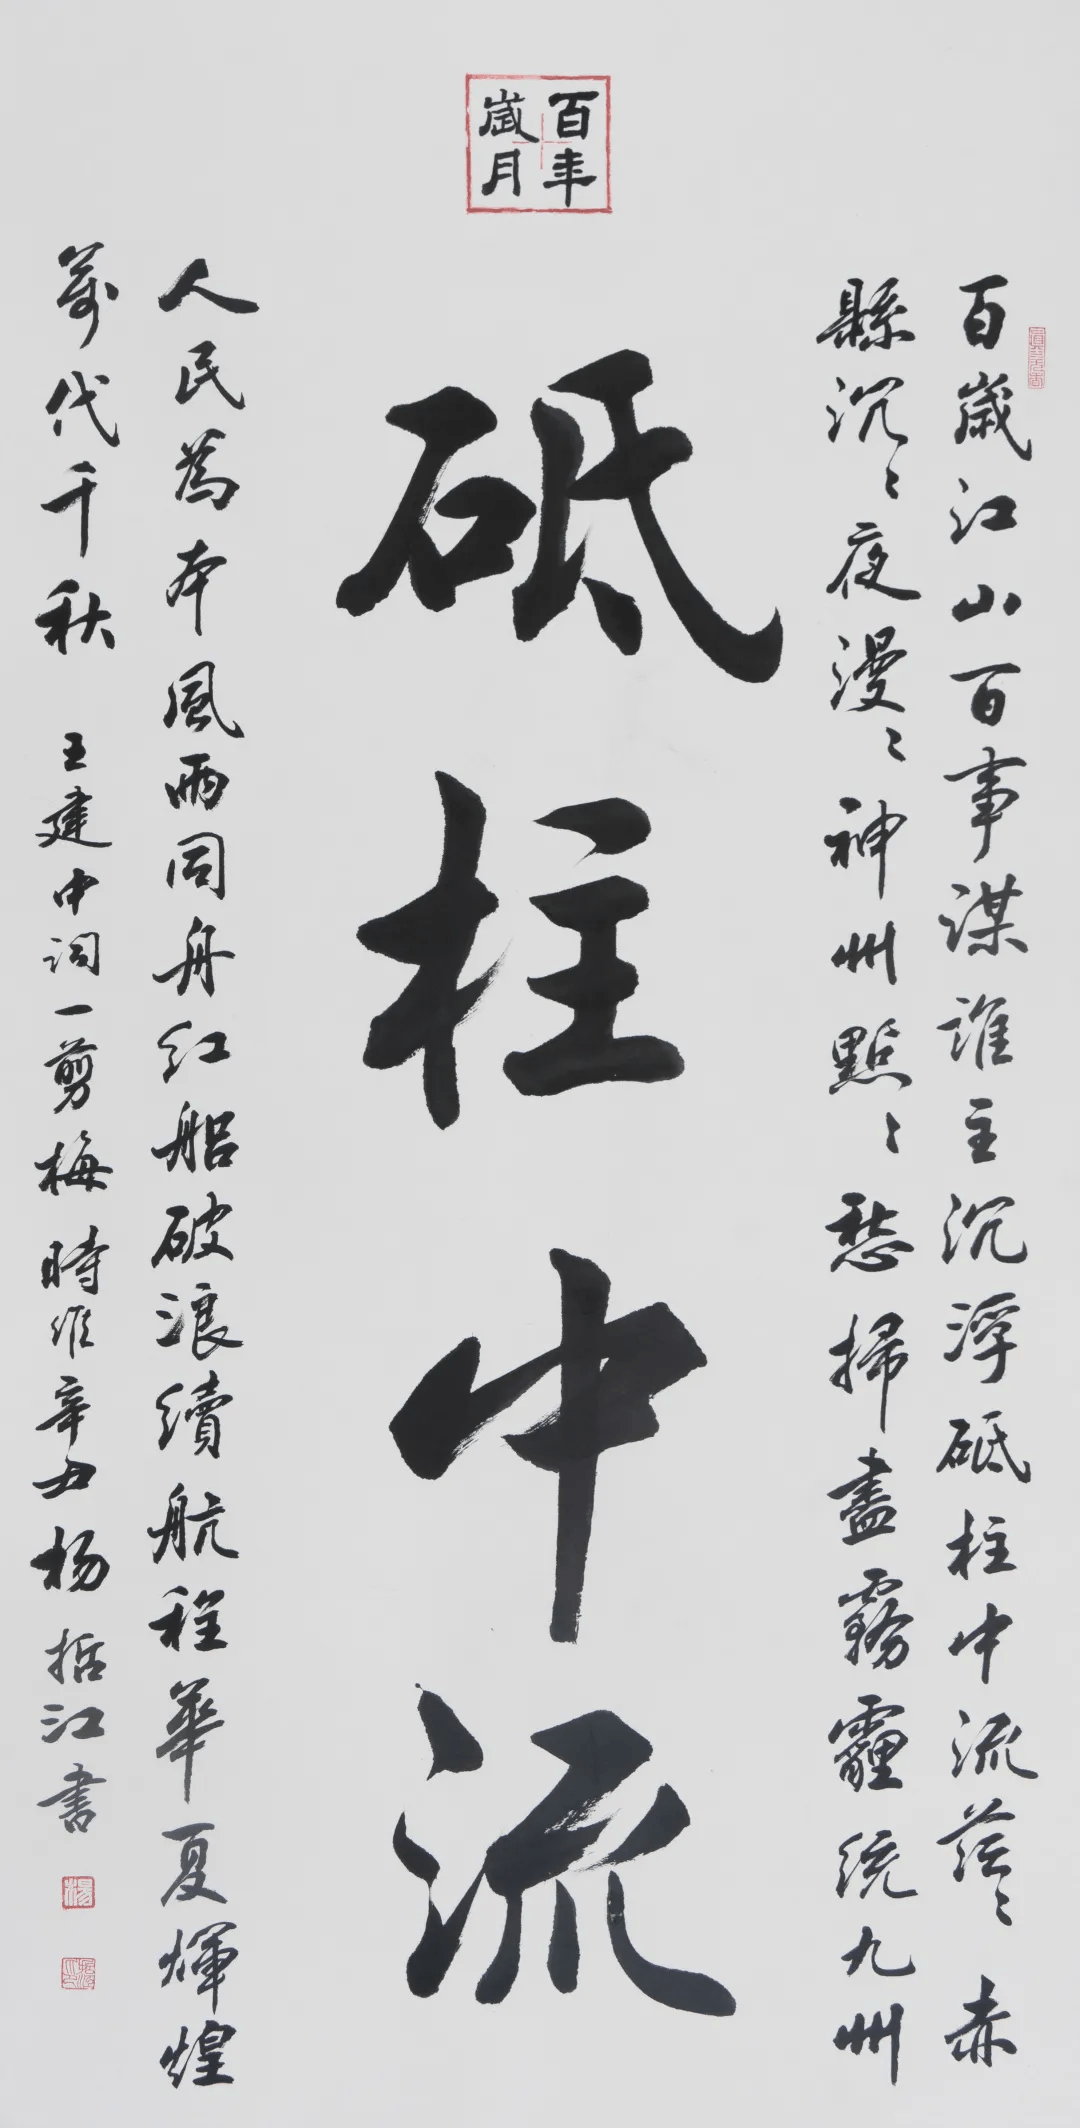 百年
歲月
百歲江山百事謀誰主沉浮砥柱中流茫〻赤
縣沉〻夜漫〻神州點〻愁掃盡霧霾統九州
砥柱中流
人民為本風雨同舟紅船破浪續航程華夏煇煌
萬代千秋 王建中詞一剪梅時維辛丑楊江書
楊